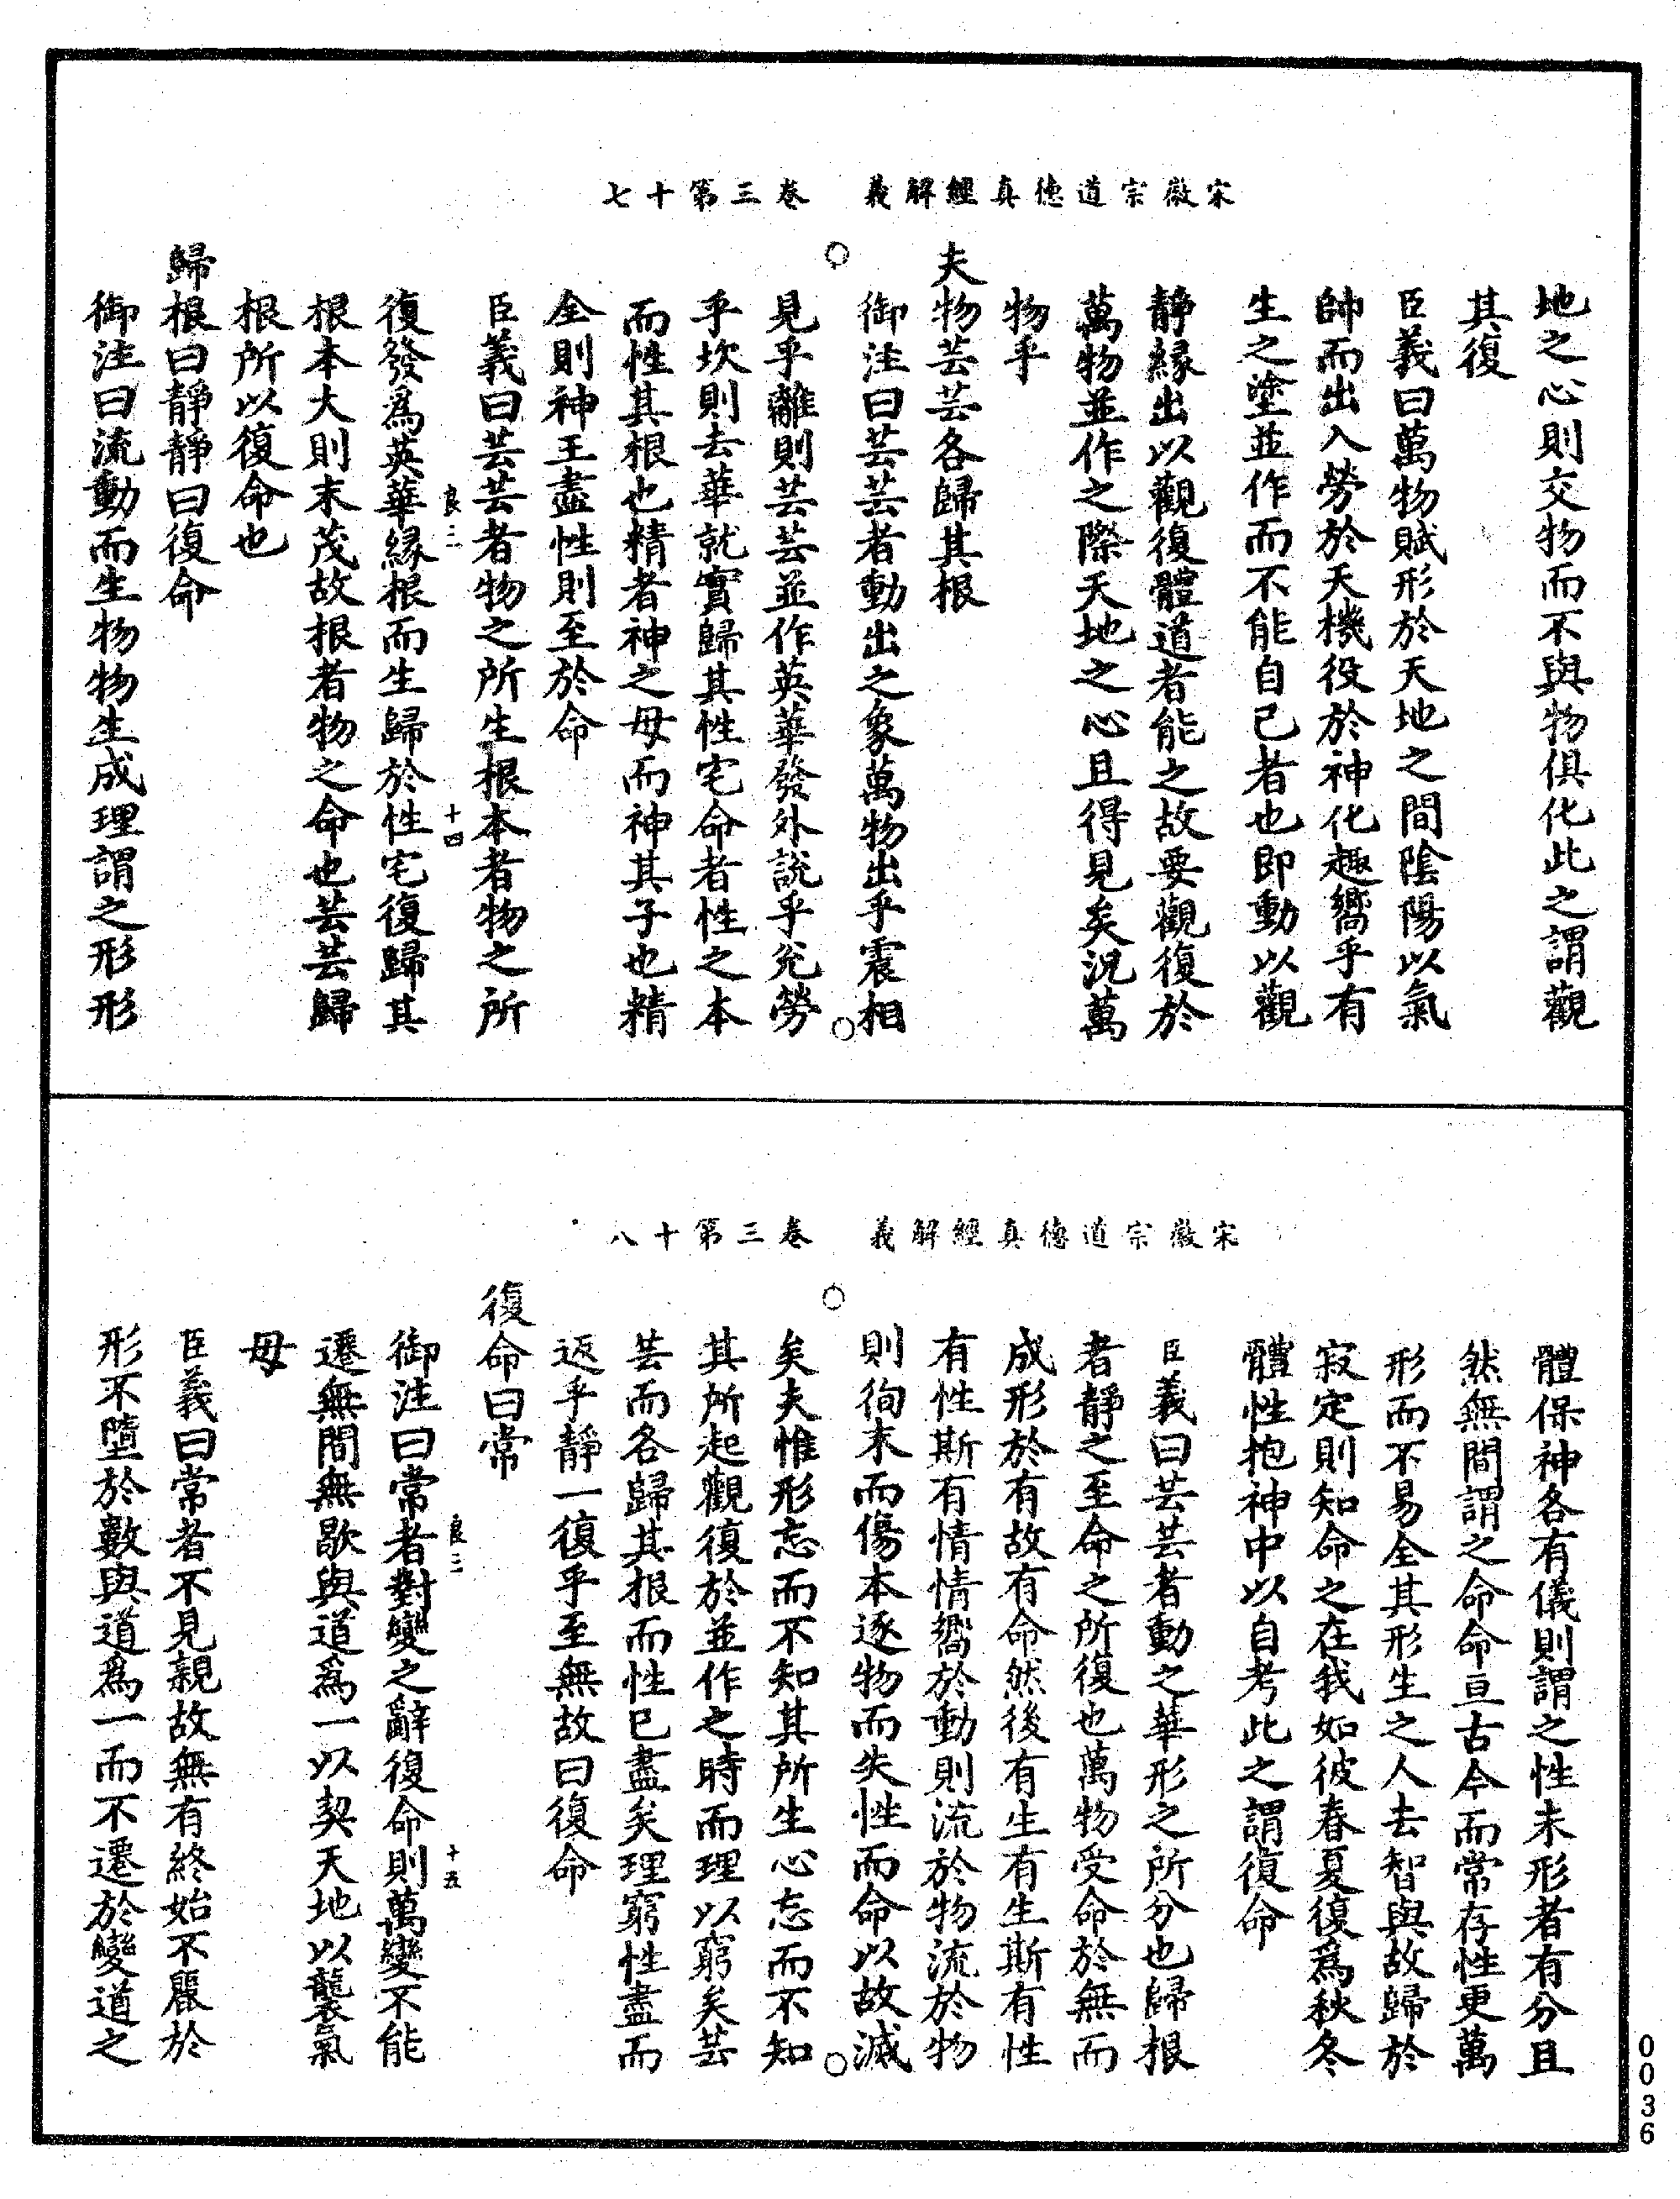 宋徽宗道德真經解義　卷三第十七
地之心則交物而不與物俱化此之謂觀
其復
臣義曰萬物賦形於天地之間陰陽以氣
帥而出入勞於天機役於神化趣嚮乎有
生之塗並作而不能自己者也即動以觀
靜緣出以觀復體道者能之故要觀復於
萬物並作之際天地之心且得見矣況萬
物乎
夫物芸芸各歸其根
御注曰芸芸者動出之象萬物出乎震相
見乎離則芸芸並作英華發外說乎兊勞
乎坎則去華就實歸其性宅命者性之本
而性其根也精者神之母而神其子也精
全則神王盡性則至於命
臣義曰芸芸者物之所生根本者物之所
良三　十四
復發為英華緣根而生歸於性宅復歸其
根本大則末茂故根者物之命也芸芸歸
根所以復命也
歸根曰靜靜曰復命
御注曰流動而生物物生成理謂之形形
宋徽宗道德真經解義　卷三第十八
體保神各有儀則謂之性未形者有分且
然無間謂之命命亘古今而常存性更萬
形而不易全其形生之人去智與故歸於
寂定則知命之在我如彼春夏復為秋冬
體性抱神中以自考此之謂復命
臣義曰芸芸者動之華形之所分也歸根
者靜之至命之所復也萬物受命於無而
成形於有故有命然後有生有生斯有性
有性斯有情情嚮於動則流於物流於物
則徇末而傷本逐物而失性而命以故滅
矣夫惟形忘而不知其所生心忘而不知
其所起觀復於並作之時而理以窮矣芸
芸而各歸其根而性已盡矣理窮性盡而
返乎靜一復乎至無故曰復命
復命曰常
良三　十五
御注曰常者對變之辭復命則萬變不能
遷無間無歇與道為一以契天地以襲氣
母
臣義曰常者不見親故無有終始不麗於
形不墮於數與道為一而不遷於變道之
0036